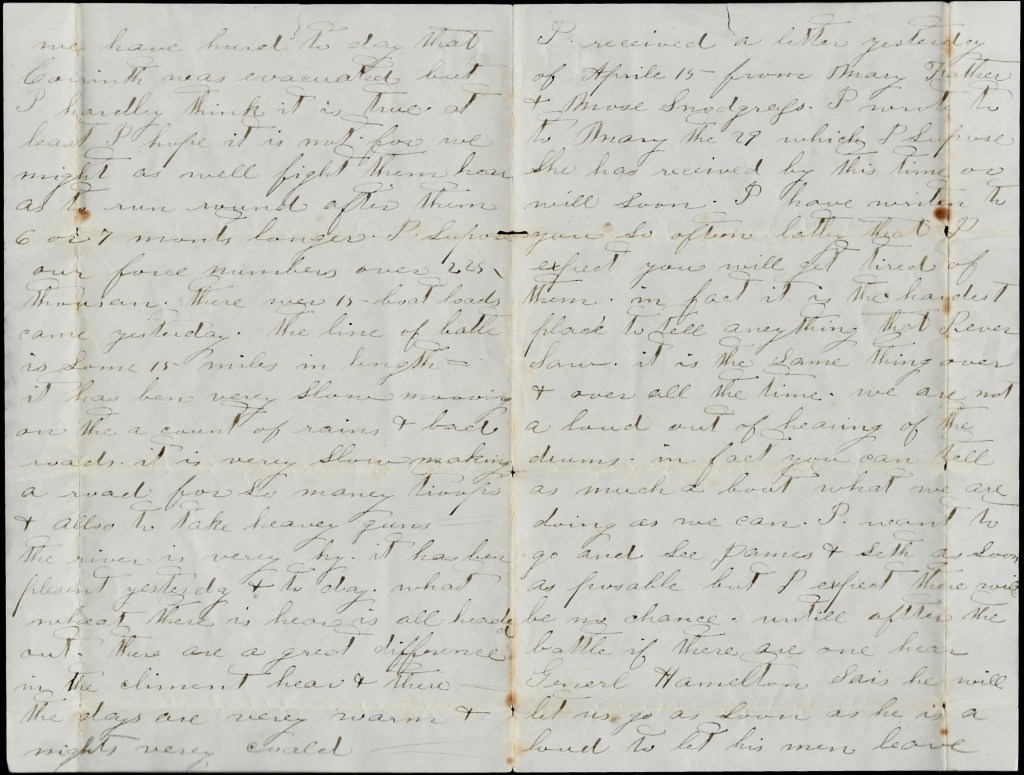 we have hurd to day that
Corrinth was evacuated but
I hardley think it is true. at
least I hope it is not for we
might as well fight them hear
as to run round after them
6 or 7 monts longer. I Supose
our force numbers over 225,
thousan. there wer 15 boat loads
came yesterday. the line of batle
is Some 15 miles in length—
it has ben verey Slow mooving
on the a count of rains & bad
roads. it is verey Slow making
a road for So maney troops
& allso to take heavey guns—
the river is verey hy. it has ben
plesent yesterdy & to day. what
wheat there is hear is all headed
out. there are a great difference
in the climent hear & there—
the days are verey warm &
nights verey coald
I received a letter yesterdy
of Aprile 15 from Mary Father
& Mose Snodgrass. I wrote to
to Mary the 29 which I Supose
She has received by this time or
will Soon. I have writen to
you So often latter that I
expect you will get tired of
them. in fact it is the hardest
place to tell aneything that I ever
Saw. it is the Same thing over
& over all the time. we are not
a loud out of hearing of the
drums. in fact you can tell
as much a bout what we are
doing as we can. I want to
go and See James & Seth as Soon
as posable but I expect there will
be no chance. untill aftter the
battle if there are one hear
Generl Hamelton Sais he will
let us go as Soon as he is a
loud to let his men leave